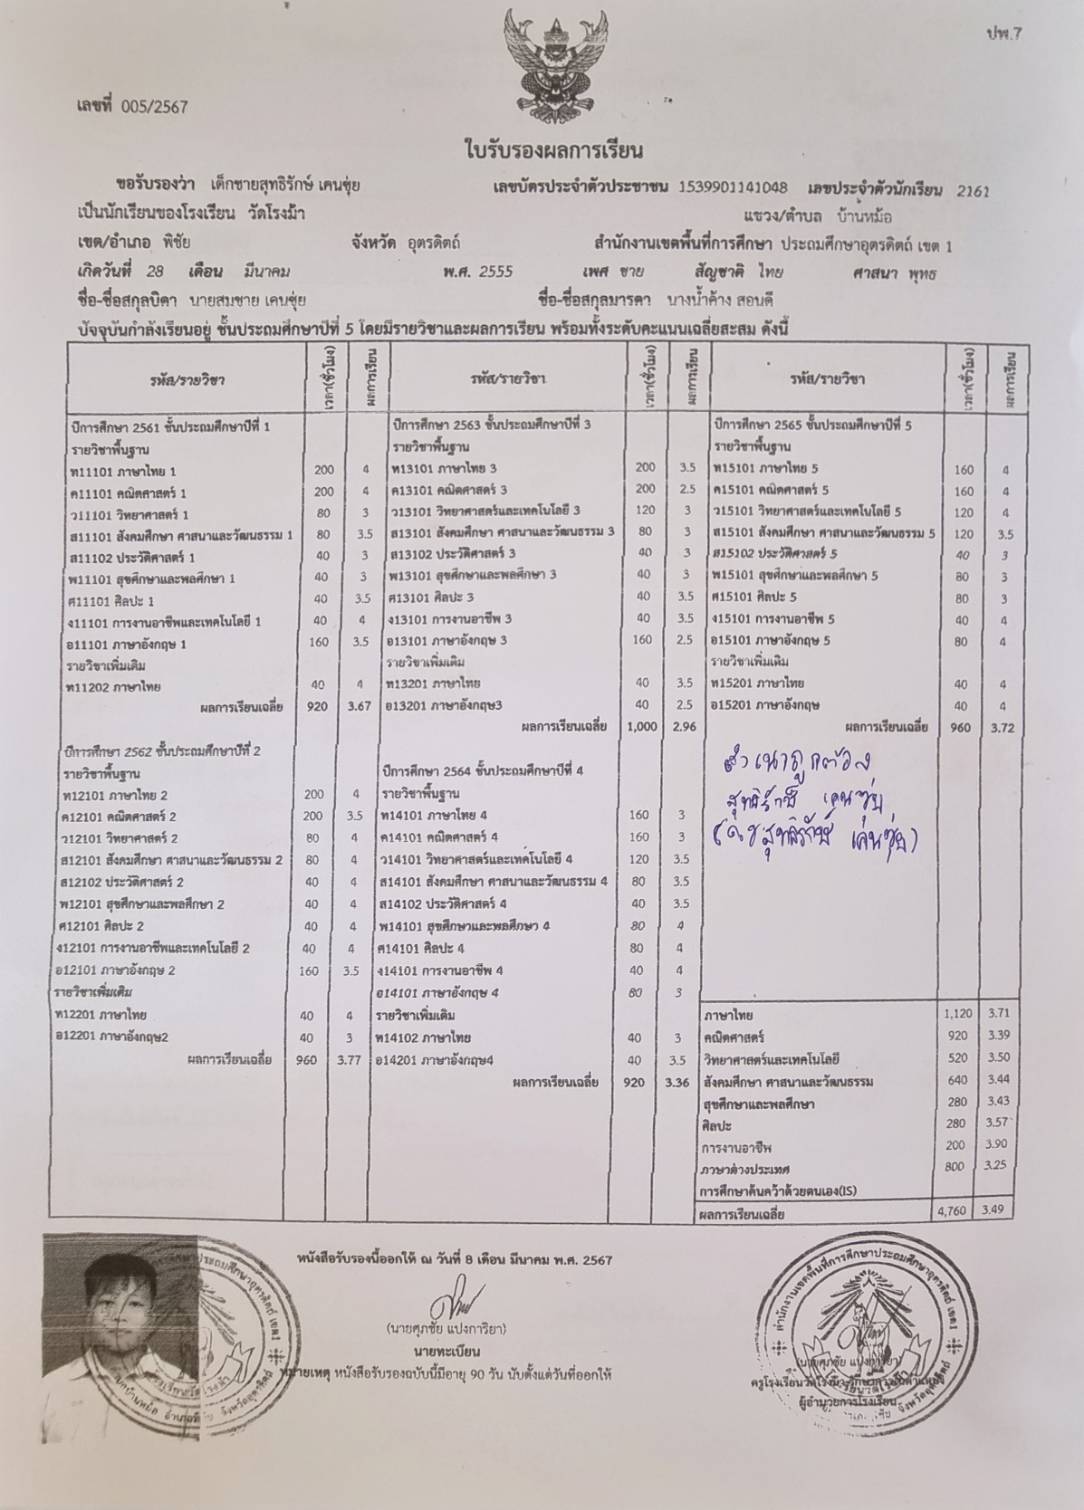 ปพ.7
เลขที่ 005/2567
ใบรับรองผลการเรียน
ขอรับรองว่า เด็กชายสุทธิรักษ์ เคนซุ่ย เลขบัตรประจำตัวประชาชน 1539901141048 เลขประจำตัวนักเรียน 2161
เป็นนักเรียนของโรงเรียน วัดโรงม้า แขวง/ตำบล บ้านหม้อ
เขต/อำเภอ พิชัย จังหวัด อุตรดิตถ์ สำนักงานเขตพื้นที่การศึกษา ประถมศึกษาอุตรดิตถ์ เขต 1
เกิดวันที่ 28 เดือน มีนาคม พ.ศ. 2555 เพศ ชาย สัญชาติ ไทย ศาสนา พุทธ
ชื่อ-ชื่อสกุลบิดา นายสมชาย เคนซุ่ย ชื่อ-ชื่อสกุลมารดา นางน้ำค้าง สอนดี
ปัจจุบันกำลังเรียนอยู่ ชั้นประถมศึกษาปีที่ 5 โดยมีรายวิชาและผลการเรียน พร้อมทั้งระดับคะแนนเฉลี่ยสะสม ดังนี้
รหัส/รายวิชา เวลา(ชั่วโมง) ผลการเรียน
ปีการศึกษา 2561 ชั้นประถมศึกษาปีที่ 1
รายวิชาพื้นฐาน
ท11101 ภาษาไทย 1 200 4
ค11101 คณิตศาสตร์ 1 200 4
ว11101 วิทยาศาสตร์ 1 80 3
ส11101 สังคมศึกษา ศาสนาและวัฒนธรรม 1 80 3.5
ส11102 ประวัติศาสตร์ 1 40 3
พ11101 สุขศึกษาและพลศึกษา 1 40 3
ศ11101 ศิลปะ 1 40 3.5
ง11101 การงานอาชีพและเทคโนโลยี 1 40 4
อ11101 ภาษาอังกฤษ 1 160 3.5
รายวิชาเพิ่มเติม
ท11202 ภาษาไทย 40 4
ผลการเรียนเฉลี่ย 920 3.67
ปีการศึกษา 2562 ชั้นประถมศึกษาปีที่ 2
รายวิชาพื้นฐาน
ท12101 ภาษาไทย 2 200 4
ค12101 คณิตศาสตร์ 2 200 3.5
ว12101 วิทยาศาสตร์ 2 80 4
ส12101 สังคมศึกษา ศาสนาและวัฒนธรรม 2 80 4
ส12102 ประวัติศาสตร์ 2 40 4
พ12101 สุขศึกษาและพลศึกษา 2 40 4
ศ12101 ศิลปะ 2 40 4
ง12101 การงานอาชีพและเทคโนโลยี 2 40 4
อ12101 ภาษาอังกฤษ 2 160 3.5
รายวิชาเพิ่มเติม
ท12201 ภาษาไทย 40 4
อ12201 ภาษาอังกฤษ2 40 3
ผลการเรียนเฉลี่ย 960 3.77
รหัส/รายวิชา เวลา(ชั่วโมง) ผลการเรียน
ปีการศึกษา 2563 ชั้นประถมศึกษาปีที่ 3
รายวิชาพื้นฐาน
ท13101 ภาษาไทย 3 200 3.5
ค13101 คณิตศาสตร์ 3 200 2.5
ว13101 วิทยาศาสตร์และเทคโนโลยี 3 120 3
ส13101 สังคมศึกษา ศาสนาและวัฒนธรรม 3 80 3
ส13102 ประวัติศาสตร์ 3 40 3
พ13101 สุขศึกษาและพลศึกษา 3 40 3
ศ13101 ศิลปะ 3 40 3.5
ง13101 การงานอาชีพ 3 40 3.5
อ13101 ภาษาอังกฤษ 3 160 2.5
รายวิชาเพิ่มเติม
ท13201 ภาษาไทย 40 3.5
อ13201 ภาษาอังกฤษ3 40 2.5
ผลการเรียนเฉลี่ย 1,000 2.96
ปีการศึกษา 2564 ชั้นประถมศึกษาปีที่ 4
รายวิชาพื้นฐาน
ท14101 ภาษาไทย 4 160 3
ค14101 คณิตศาสตร์ 4 160 3
ว14101 วิทยาศาสตร์และเทคโนโลยี 4 120 3.5
ส14101 สังคมศึกษา ศาสนาและวัฒนธรรม 4 80 3.5
ส14102 ประวัติศาสตร์ 4 40 3.5
พ14101 สุขศึกษาและพลศึกษา 4 80 4
ศ14101 ศิลปะ 4 80 4
ง14101 การงานอาชีพ 4 40 4
อ14101 ภาษาอังกฤษ 4 80 3
รายวิชาเพิ่มเติม
ท14102 ภาษาไทย 40 3
อ14201 ภาษาอังกฤษ4 40 3.5
ผลการเรียนเฉลี่ย 920 3.36
รหัส/รายวิชา เวลา(ชั่วโมง) ผลการเรียน
ปีการศึกษา 2565 ชั้นประถมศึกษาปีที่ 5
รายวิชาพื้นฐาน
ท15101 ภาษาไทย 5 160 4
ค15101 คณิตศาสตร์ 5 160 4
ว15101 วิทยาศาสตร์และเทคโนโลยี 5 120 4
ส15101 สังคมศึกษา ศาสนาและวัฒนธรรม 5 120 3.5
ส15102 ประวัติศาสตร์ 5 40 3
พ15101 สุขศึกษาและพลศึกษา 5 80 3
ศ15101 ศิลปะ 5 80 3
ง15101 การงานอาชีพ 5 40 4
อ15101 ภาษาอังกฤษ 5 80 4
รายวิชาเพิ่มเติม
ท15201 ภาษาไทย 40 4
อ15201 ภาษาอังกฤษ 40 4
ผลการเรียนเฉลี่ย 960 3.72
สำเนาถูกต้อง
สุทธิรักษ์ เคนซุ่ย
(ด.ช สุทธิรักษ์ เคนซุ่ย)
ภาษาไทย 1,120 3.71
คณิตศาสตร์ 920 3.39
วิทยาศาสตร์และเทคโนโลยี 520 3.50
สังคมศึกษา ศาสนาและวัฒนธรรม 640 3.44
สุขศึกษาและพลศึกษา 280 3.43
ศิลปะ 280 3.57
การงานอาชีพ 200 3.90
ภาษาต่างประเทศ 800 3.25
การศึกษาค้นคว้าด้วยตนเอง(IS)
ผลการเรียนเฉลี่ย 4,760 3.49
หนังสือรับรองนี้ออกให้ ณ วันที่ 8 เดือน มีนาคม พ.ศ. 2567
(นายศุภชัย แปงการิยา)
นายทะเบียน
หมายเหตุ หนังสือรับรองฉบับนี้มีอายุ 90 วัน นับตั้งแต่วันที่ออกให้
สำนักงานเขตพื้นที่การศึกษาประถมศึกษาอุตรดิตถ์ เขต1
ผู้อำนวยการโรงเรียน